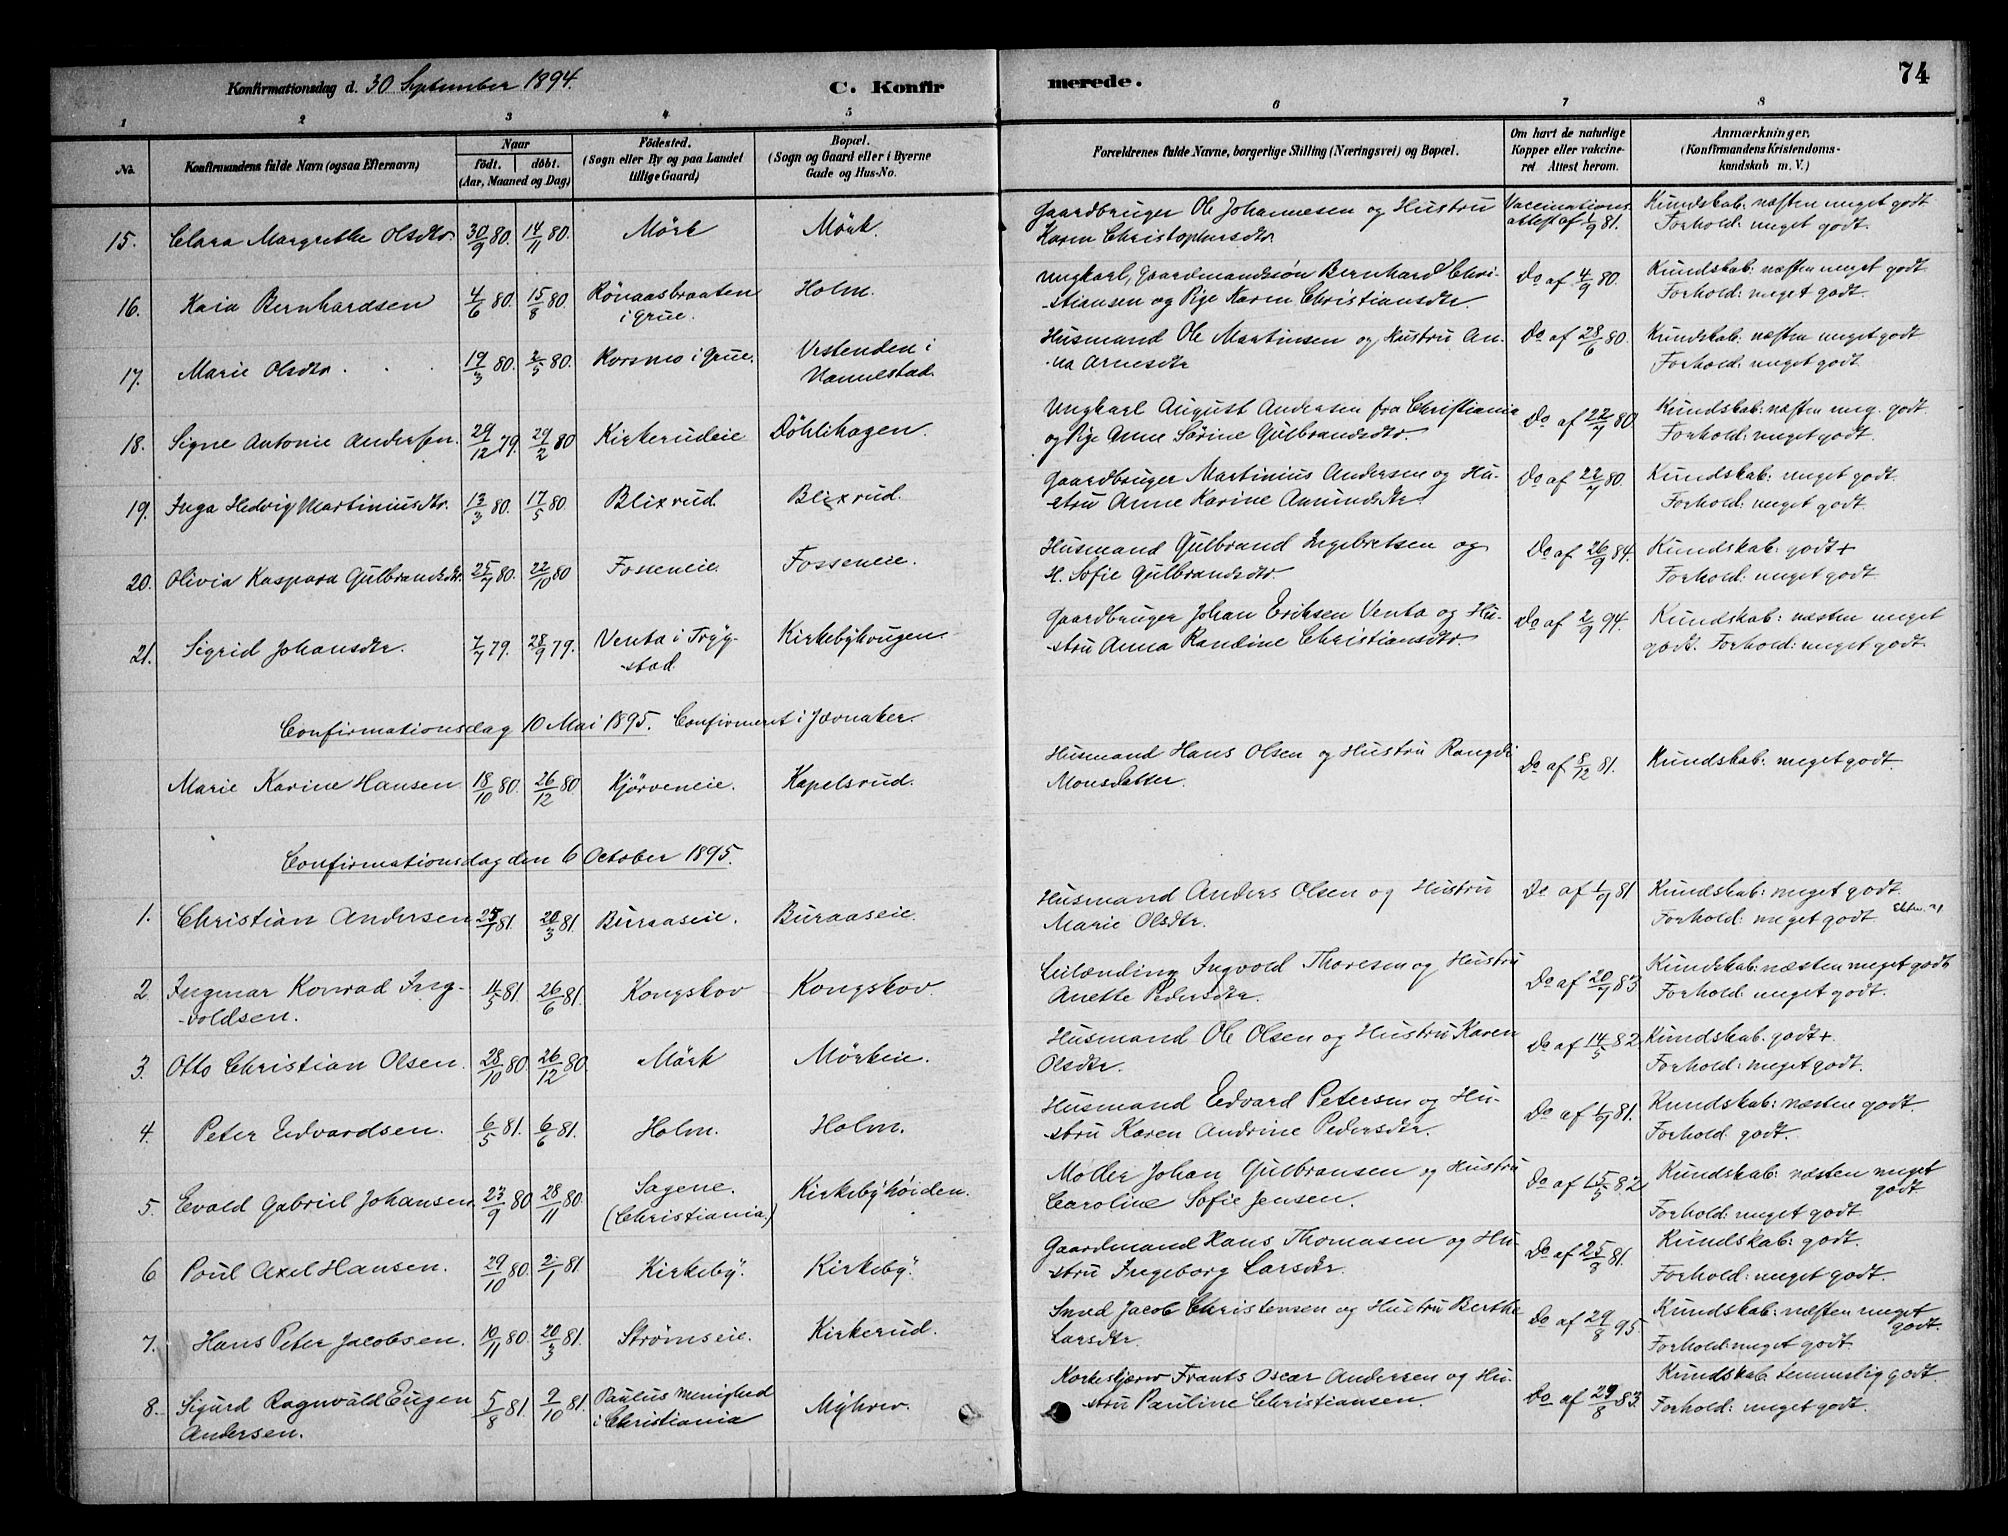 Konfirmationsdag d. 30 September 1894. C. Konfirmerede. 74
1 2 3 4 5 6 7 8
No. Konfirmandens fulde Navn (ogsaa Efternavn) Naar født. døbt. (Aar, Maaned og Dag) Fødested. (Sogn eller By og paa Landet tillige Gaard) Bopæl. (Sogn og Gaard eller i Byerne Gade og Hus-No. Forældrenes fulde Navne, borgerlige Stilling (Næringsvei) og Bopæl. Om havt de naturlige Kopper eller vakcineret Attest herom. Anmærkninger. (Konfirmandens Kristendomskundskab m. V.)
15. Clara Margrethe Olsdtr. 30/9 80. 14/11 80. Mörk Mörk. Gaardbruger Ole Johannesen og Hustru Karen Christophersdtr. Vaccinationsattest af 1/9 81. Kundskab: næsten meget godt Forhold: meget godt.
16. Kaia Bernhardsen 4/6 80. 15/8 80. Rönaasbraaten i Grue. Holm. Ungkarl, Gaardmandssön Bernhard Christiansen og Pige Karen Christiansdtr Do af 4/9 80. Kundskab: næsten meget godt Forhold: meget godt.
17. Marie Olsdtr. 19/3 80. 2/5 80. Korsmo i Grue. Vestenden i Nannestad. Husmand Ole Martinsen og Hustru Anna Arnesdtr Do af 28/6 80. Kundskab: næsten meget godt Forhold: meget godt.
18. Signe Antonie Andersen. 29/12 79. 29/2 80 Kirkerudeie Döhlihagen. Ungkarl August Andersen fra Christiania og Pige Anne Sörine Gulbrandsdtr. Do af 22/7 80 Kundskab: næsten meg. godt. Forhold: meget godt.
19. Inga Hedvig Martiniusdtr. 13/3 80. 17/5 80. Blixrud. Blixrud. Gaardbruger Martinius Andersen og Hustru Anne Karine Amundsdtr. Do af 22/7 80. Kundskab: næsten meget godt. Forhold: meget godt.
20. Olivia Kaspara Gulbrandsdtr. 25/7 80. 22/10 80 Fosseneie. Fosseneie. Husmand Gulbrand Ingebretsen og H. Sofie Gulbrandsdtr. Do af 26/9 84. Kundskab: godt + Forhold: meget godt.
21. Sigrid Johansdtr. 7/7 79. 28/9 79. Venta i Trygstad Kirkebyhougen Gaardbruger Johan Eriksen Venta og Hustru Anna Randine Christiansdtr. Do af 2/9 94. Kundskab: næsten meget godt. Forhold: meget godt.
Confirmationsdag 10 Mai 1895. Confirmeret i Jævnaker.
Marie Karine Hansen 18/10 80. 26/12 80. Kjörveneie. Kapelsrud. Husmand Hans Olsen og Hustru Rangdi Monsdatter. Do af 8/12 81. Kundskab: meget godt.
Confirmationsdag den 6 October 1895.
1. Christian Andersen 25/1 81. 20/3 81. Buraaseie. Buraaseie. Husmand Anders Olsen og Hustru Marie Olsdtr. Do af 1/9 81 Kundskab: meget godt. Forhold: meget godt
2 Ingmar Konrad Ingvoldsen. 11/5 81. 26/6 81. Kongskov Kongskov. Leilænding Ingvold Thoresen og Hustru Anette Pedersdtr. Do af 20/9 83 Kundskab: næsten meget godt Forhold: meget godt.
3. Otto Christian Olsen. 28/10 80. 26/12 80. Mörk Mörkeie. Husmand Ole Olsen og Hustru Karen Olsdtr. Do af 14/5 82 Kundskab: godt +. Forhold: meget godt.
4. Peter Edvardsen. 6/5 81. 6/6 81. Holm. Holm. Husmand Edvard Petersen og Hustru Karen Andrine Pedersdtr. Do af 1/9 81. Kundskab: næsten godt. Forhold godt.
5. Evald Gabriel Johansen. 23/9 80 28/11 80 Sagene. (Christiania.) Kirkebyhöiden. Möller Johan Gulbransen og Hustru Caroline Sofie Jensen. Do af 15/5 82 Kundskab: næsten meget godt Forhold: meget godt.
6 Poul Axel Hansen. 29/10 80. 2/1 81 Kirkeby. Kirkeby. Gaardmand Hans Thomasen og Hustru Ingeborg Larsdtr. Do af 25/8 81. Kundskab: godt. Forhold: meget godt.
7. Hans Peter Jacobsen. 10/11 80. 20/3 81. Strømseie. Kirkerud. Smed Jacob Christensen og Hustru Berthe Larsdtr. Do af 29/8 95. Kundskab: næsten meget godt. Forhold: meget godt.
8. Sigurd Ragnvald Eugen Andersen. 5/8 81. 9/10 81. Paulus menighed i Christiania Myhrer. Frants Oscar Andersen og Hustru Pauline Christiansen. Do af 29/8 83. Kundskab temmelig godt. Forhold: meget godt.